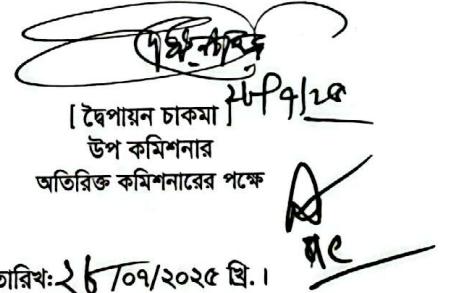 ২৮/৭/২৫
[ দ্বৈপায়ন চাকমা ]
উপ কমিশনার
অতিরিক্ত কমিশনারের পক্ষে
তারিখ: ২৮/০৭/২০২৫ খ্রি.।